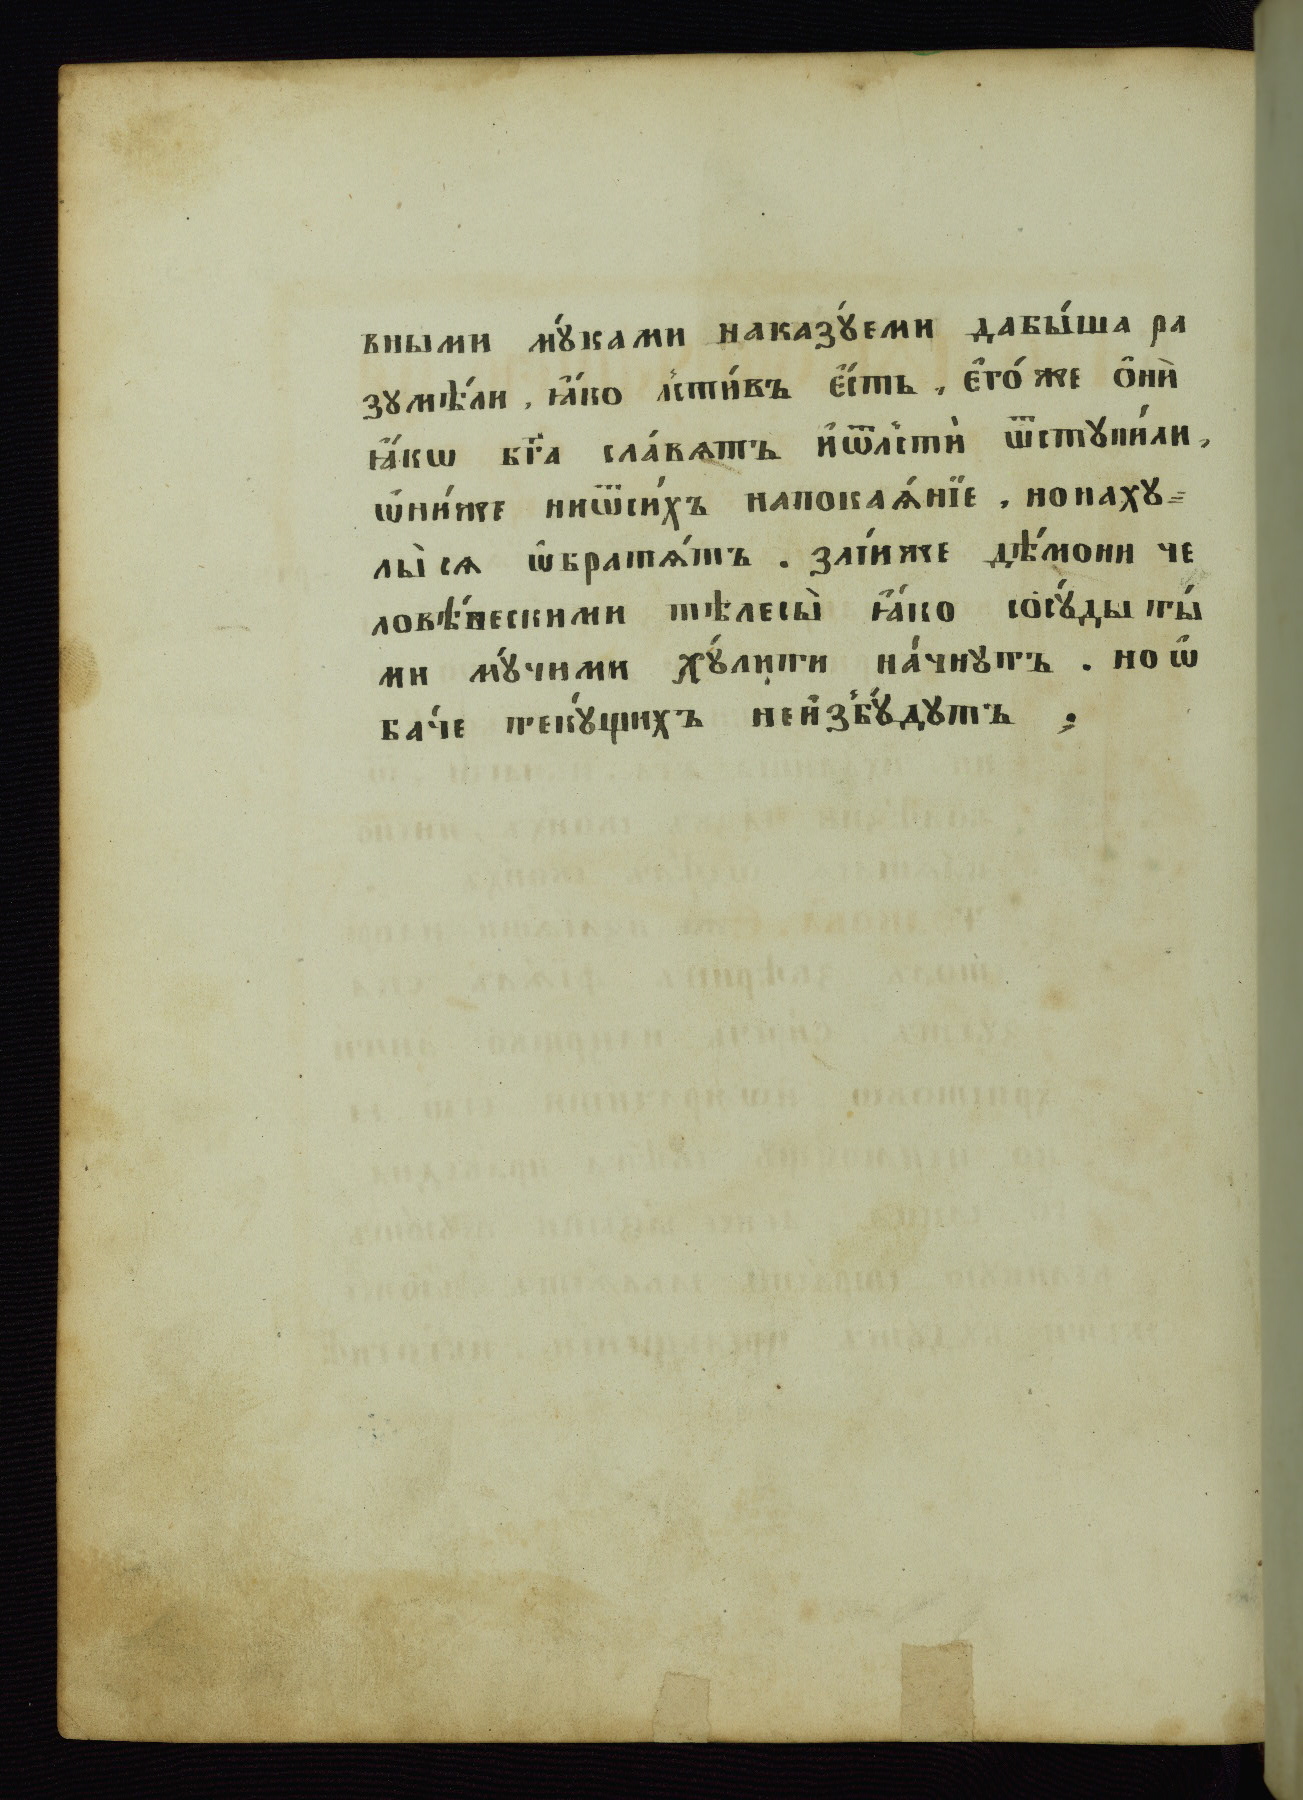 вныѡми мꙋ́ками наказꙋ́еми дабы́ша ра
зꙋмѣ́ли , ꙗ҆́ко льсти́въ є҆́сть , є҆го́же о҆нѝ
ꙗ҆́кѡ бг҃а сла́вѧтъ и҆ѿльстѝ ѿстꙋпи́ли ,
ѡ҆ни́же ниѿси́хъ напокаѧ́нїе , нонахꙋ=
лы̀сѧ ѡ҆братѧ́тъ . злі́иже дѣ́мони че
ловѣ́ческими тѣлесы̀ ꙗ҆́ко сосꙋ́ды ты́
ми мꙋ́чими хꙋ́лити на́чнꙋтъ . но ѡ҆
ба́че текꙋ́щихъ неи҆збꙋ́дꙋтъ ;